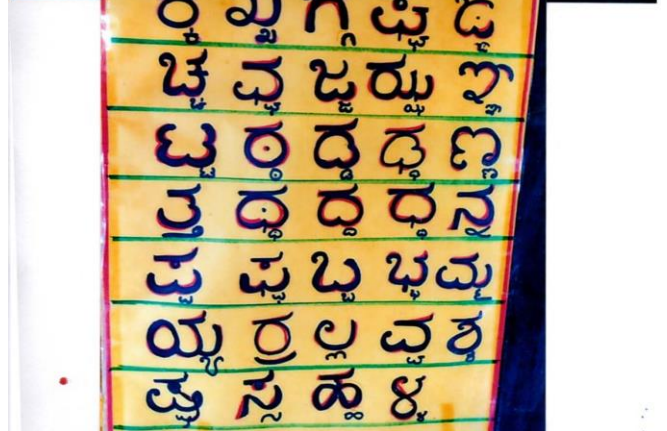 ಕ್ಕ ಖ್ಖ ಗ್ಗ ಘ್ಘ ಙ್ಙ
ಚ್ಚ ಛ್ಛ ಜ್ಜ ಝ್ಝ ಞ್ಞ
ಟ್ಟ ಠ್ಠ ಡ್ಡ ಢ್ಢ ಣ್ಣ
ತ್ತ ಥ್ಥ ದ್ದ ಧ್ಧ ನ್ನ
ಪ್ಪ ಫ್ಫ ಬ್ಬ ಭ್ಭ ಮ್ಮ
ಯ್ಯ ರ್ರ ಲ್ಲ ವ್ವ ಶ್ಶ
ಷ್ಷ ಸ್ಸ ಹ್ಹ ಳ್ಳ